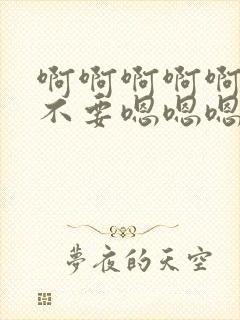 啊啊啊啊啊
不要嗯嗯嗯
夢夜的天空